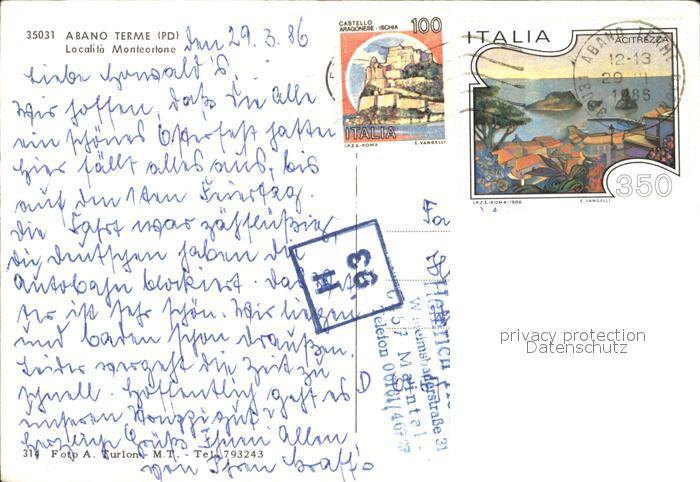 35031 ABANO TERME (PD)
Località Monteortone
den 29.3.86
Liebe
Wir hoffen, daß Sie alle
ein schönes Osterfest hatten
hier fällt alles aus, bis
auf den 1ten Feiertag.
Die Fahrt war zähflüßig
die Deutschen haben die
Autobahn blockiert. Das
ter ist sehr schön. Wir liegen
und baden schon draußen.
Leider vergeht die Zeit zu
schnell. Hoffentlich geht es
unserem gut?
Herzliche Grüße Ihnen Allen
von Ihren
314 Foto A. Turlon M.T. - Tel. 793243
CASTELLO
ARAGONESE - ISCHIA
100
ITALIA
I.P.Z.S. - ROMA E. VANGELLI
ITALIA
ACITREZZA
350
I.P.Z.S. - ROMA / 1986 E. VANGELLI
ABANO
12-13
29 III
1986
H
93
Heinrich
Wilhelmsbaderstraße 31
57 Maintal
Telefon 06181/46
D
privacy protection
Datenschutz